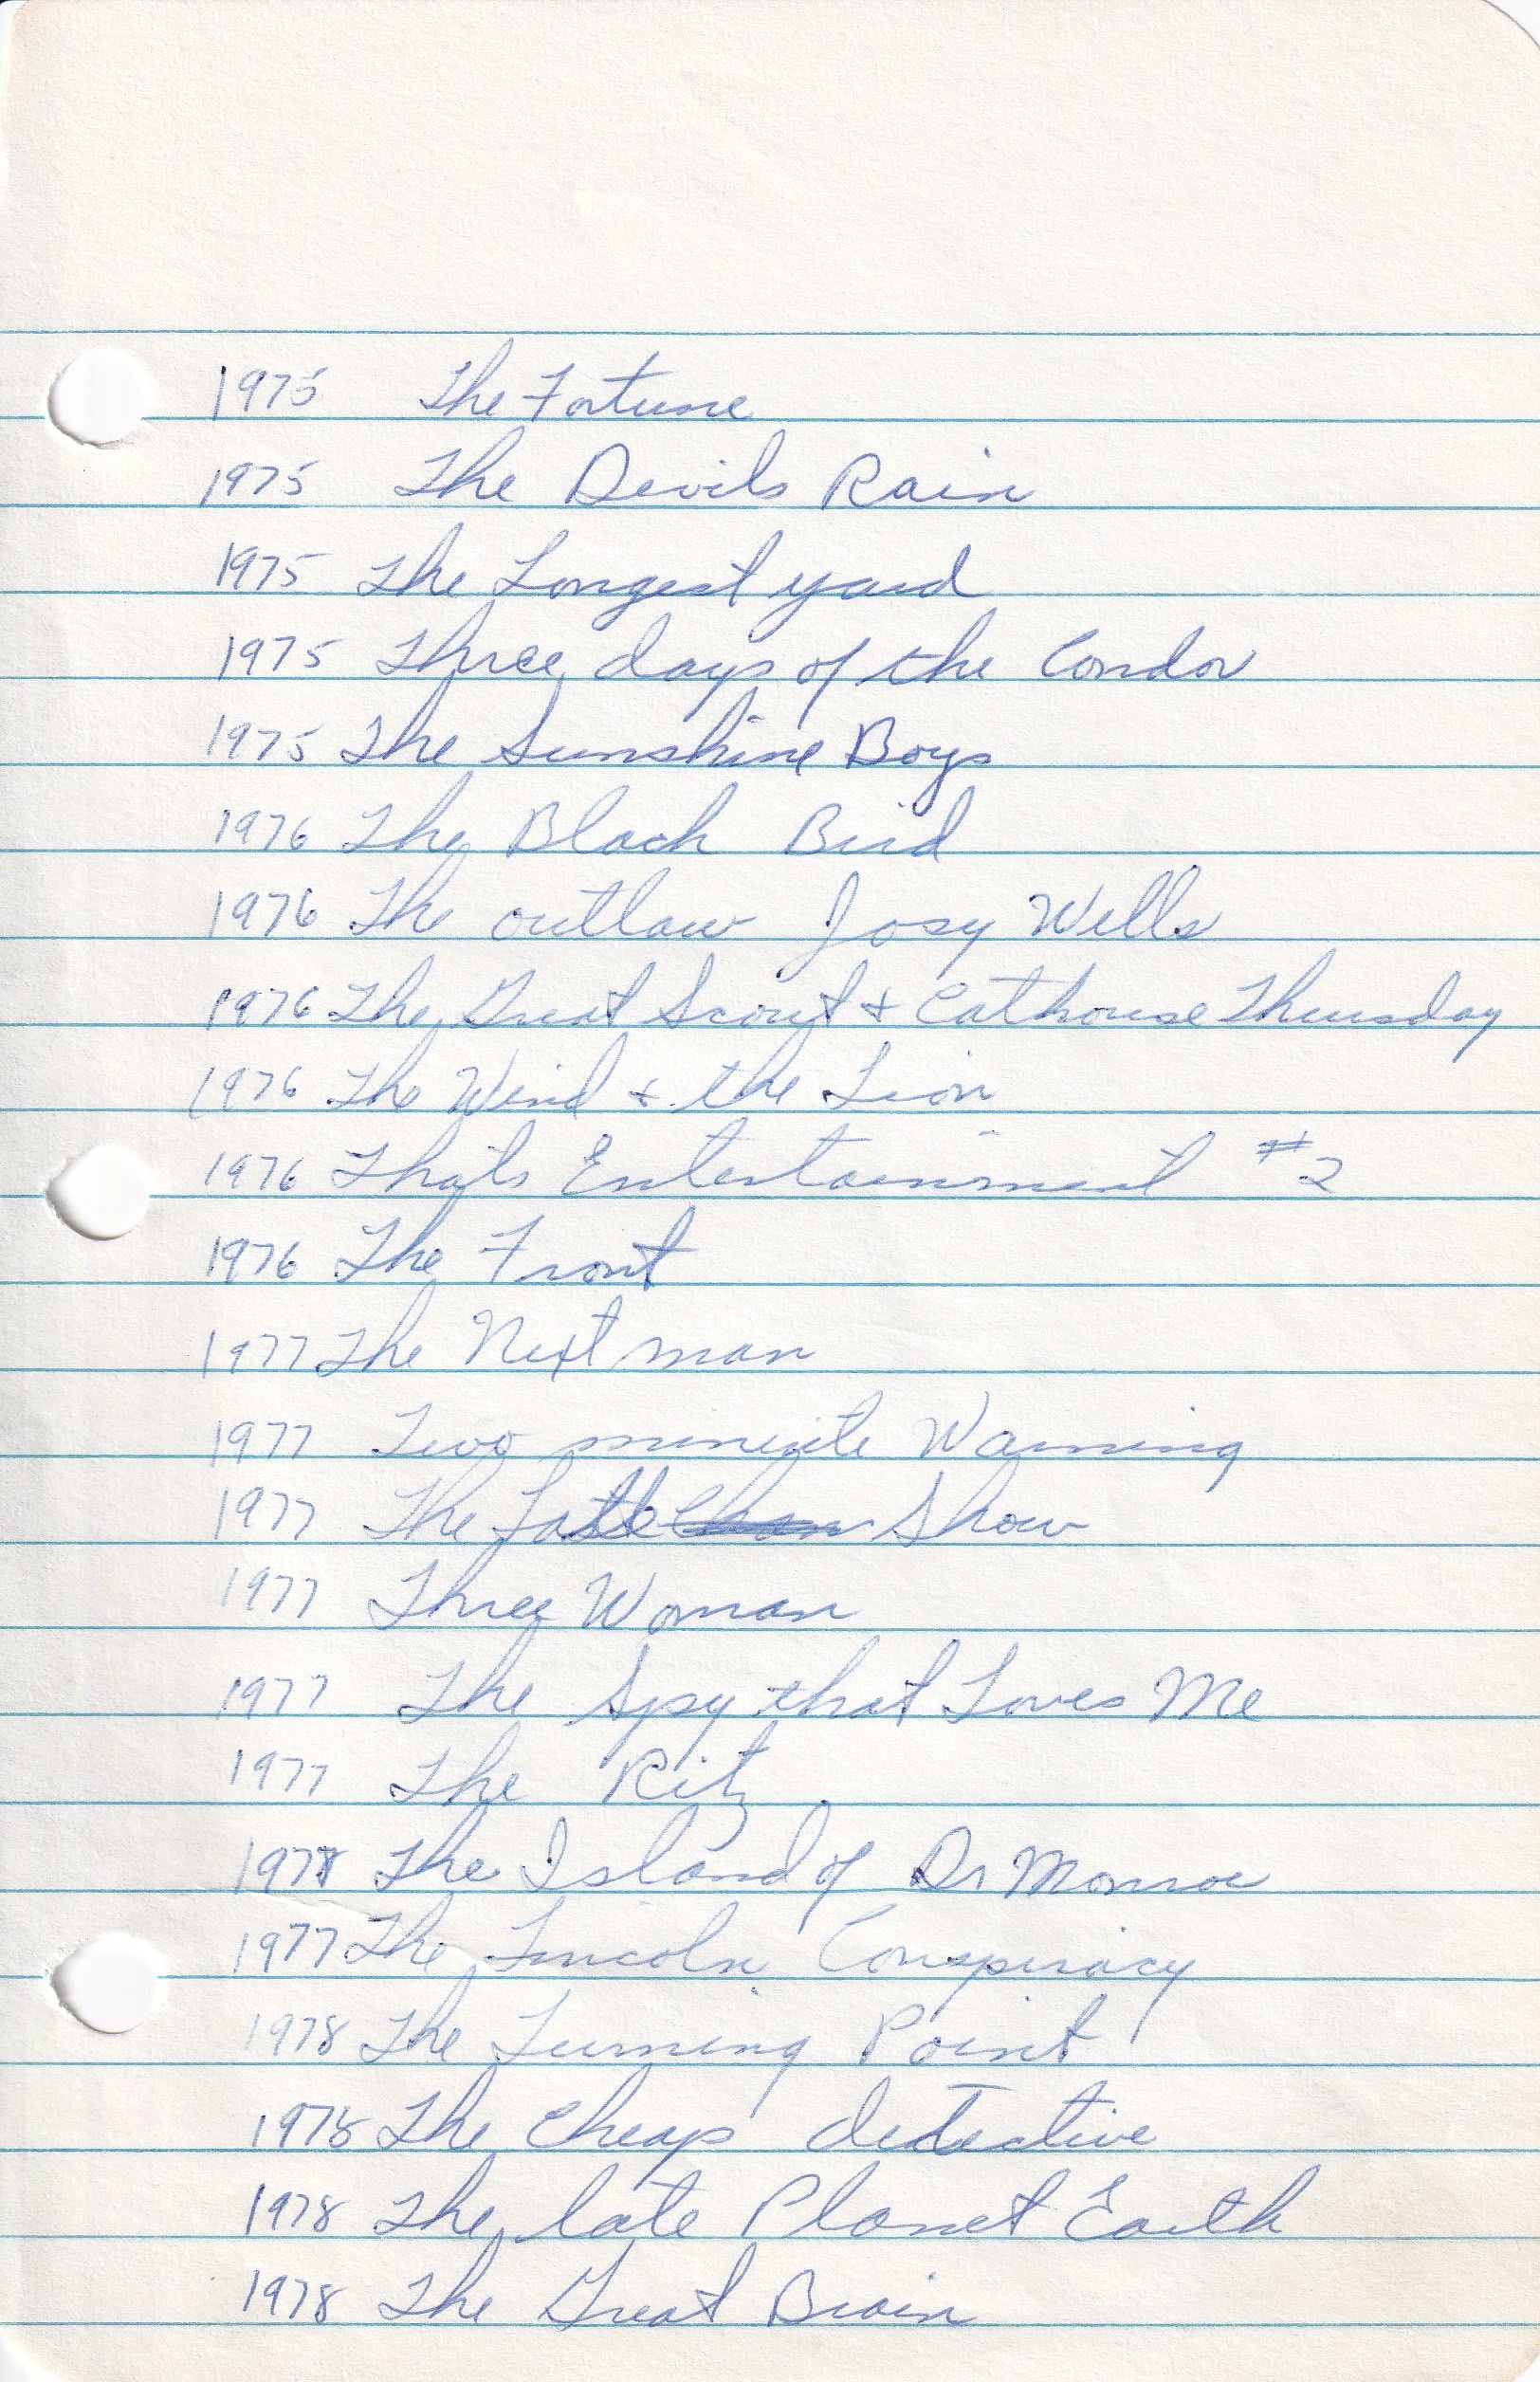 1975 The Fortune
1975 The Devils Rain
1975 The Longest yard
1975 Three days of the Condor
1975 The Sunshine Boys
1976 The Black Bird
1976 The outlaw Josy Wells
1976 The Great Scout & Cathouse Thursday
1976 The Wind & the Lion
1976 That's Entertainment #2
1976 The Front
1977 The Next man
1977 Two minute Warning
1977 The Late Show
1977 Three Woman
1977 The Spy that Loves Me
1977 The Ritz
1977 The Island of Dr Monroe
1977 The Lincoln Conspiracy
1978 The Turning Point
1978 The Cheap detective
1978 The late Planet Earth
1978 The Great Brain